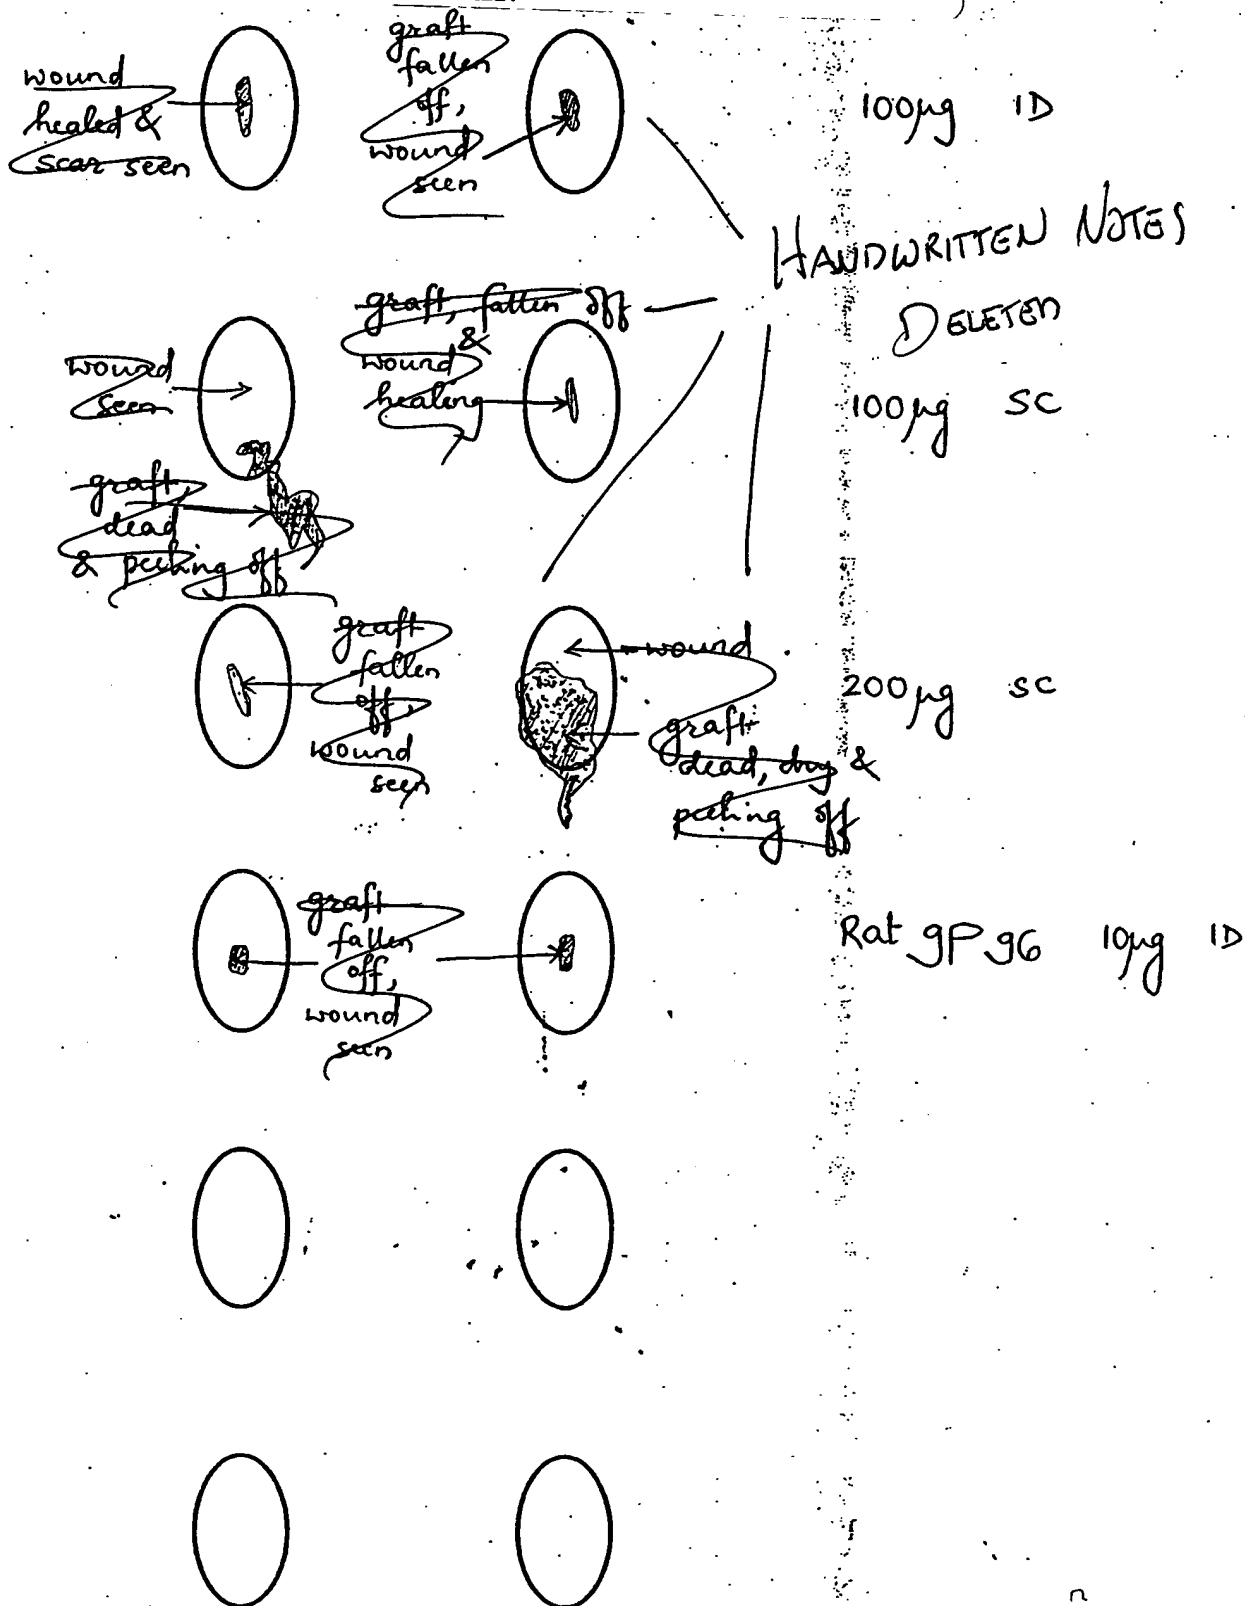 wound
healed &
scar seen
graft
fallen
off,
wound
seen
100μg ID
HANDWRITTEN NOTES
DELETED
graft, fallen off
&
wound
healing
wound
seen
100μg SC
graft,
dead
& peeling off
graft
fallen
off,
wound
seen
wound
graft
dead, dry &
peeling off
200μg SC
graft
fallen
off,
wound
seen
Rat gp 96 10μg ID